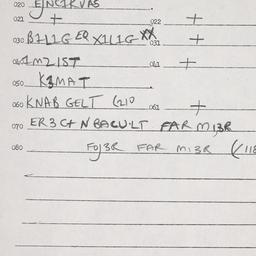 020 EJNC1KVAS
021 + 022 +
030 B1L1G EQ X1L1G XX 031 +
041 1MZIST 061 +
050 K3MAT
060 KNAB GELT 061 +
070 ER3C+ NBACULT FAR M13R
080 FOJ3R FAR M13R